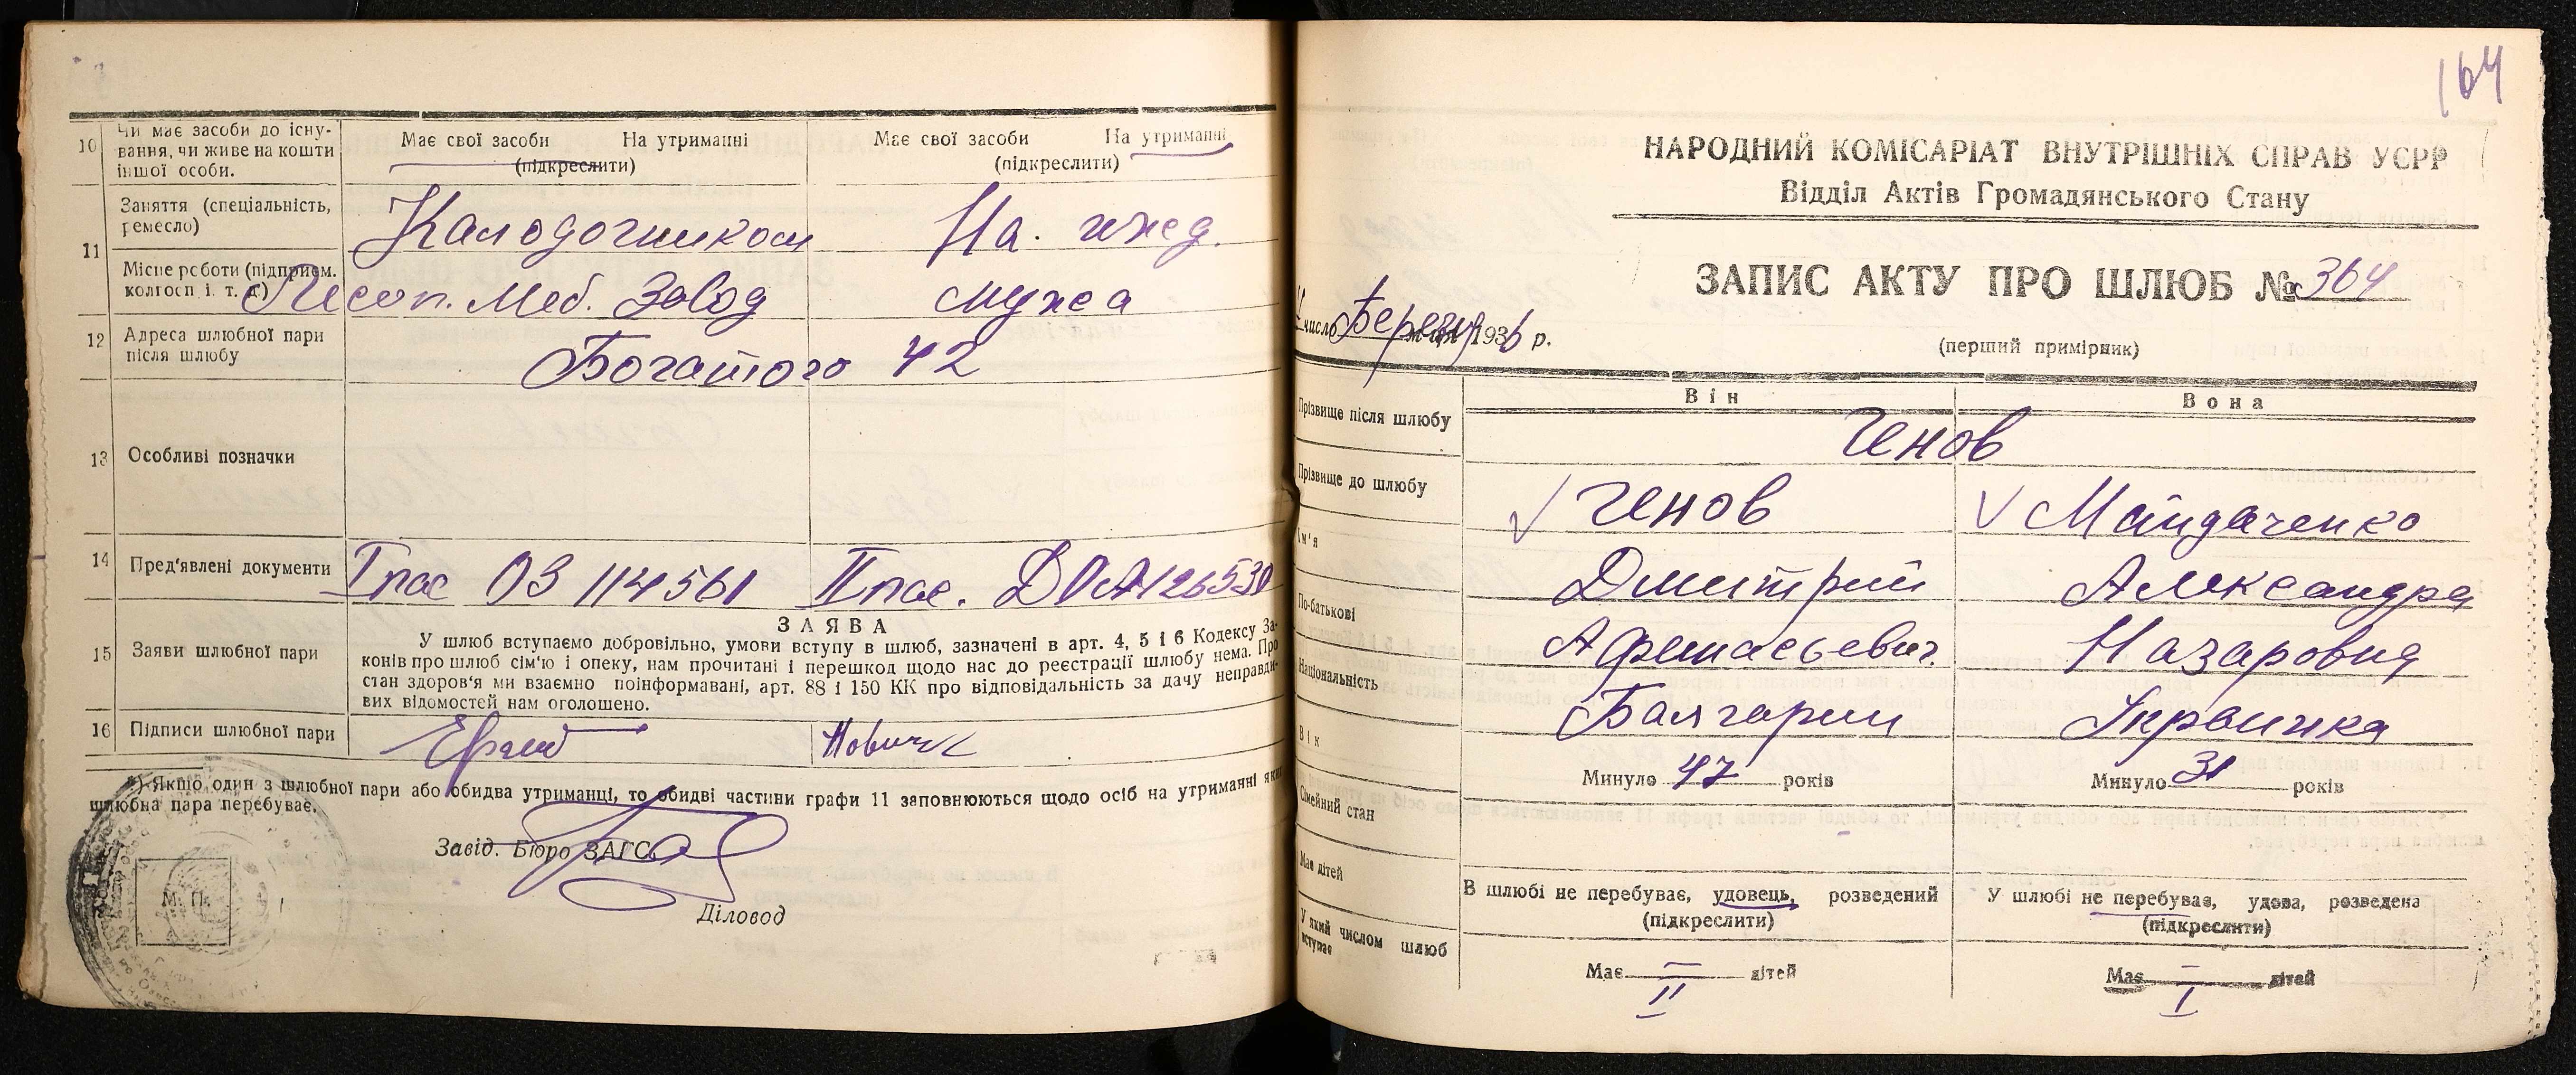 10 Чи має засоби до існування, чи живе на кошти іншої особи.
Має свої засоби На утриманні
(підкреслити)
Має свої засоби На утриманні
(підкреслити)
11 Заняття (спеціальність, ремесло)
Калодочником
На. ижед.
Місце роботи (підприєм. колгосп і. т. д.)
Лесоп. Меб. Завод
мужа
12 Адреса шлюбної пари після шлюбу
Богатого 42
13 Особливі позначки
14 Пред'явлені документи
I пас ОЗ 114561 II пас. ДОА 126530
15 Заяви шлюбної пари
ЗАЯВА
У шлюб вступаємо добровільно, умови вступу в шлюб, зазначені в арт. 4, 5 і 6 Кодексу За-
конів про шлюб сім'ю і опеку, нам прочитані і перешкод щодо нас до реєстрації шлюбу нема. Про
стан здоров'я ми взаємно поінформавані, арт. 88 і 150 КК про відповідальність за дачу неправди-
вих відомостей нам оголошено.
16 Підписи шлюбної пари
*) Якщо один з шлюбної пари або обидва утриманці, то обидві частини графи 11 заповнюються щодо осіб на утриманні яких
шлюбна пара перебуває.
Завід. Бюро ЗАГС
М. П.
Діловод
164
НАРОДНИЙ КОМІСАРІАТ ВНУТРІШНІХ СПРАВ УСРР
Відділ Актів Громадянського Стану
ЗАПИС АКТУ ПРО ШЛЮБ № 364
число 1936 р.
(перший примірник)
Він Вона
Прізвище після шлюбу
Ченов
Прізвище до шлюбу
Ченов
Майдаченко
Ім'я
Дмитрий
Александра
По-батькові
Афанасьевич
Назаровна
Національність
Балгарин
Украинка
Вік
Минуло 47 років
Минуло 31 років
Сімейний стан
В шлюбі не перебуває, удовець, розведений
(підкреслити)
У шлюбі не перебуває, удова, розведена
(підкреслити)
Має дітей
Має — дітей
Має — дітей
У який числом шлюб вступає
II
I